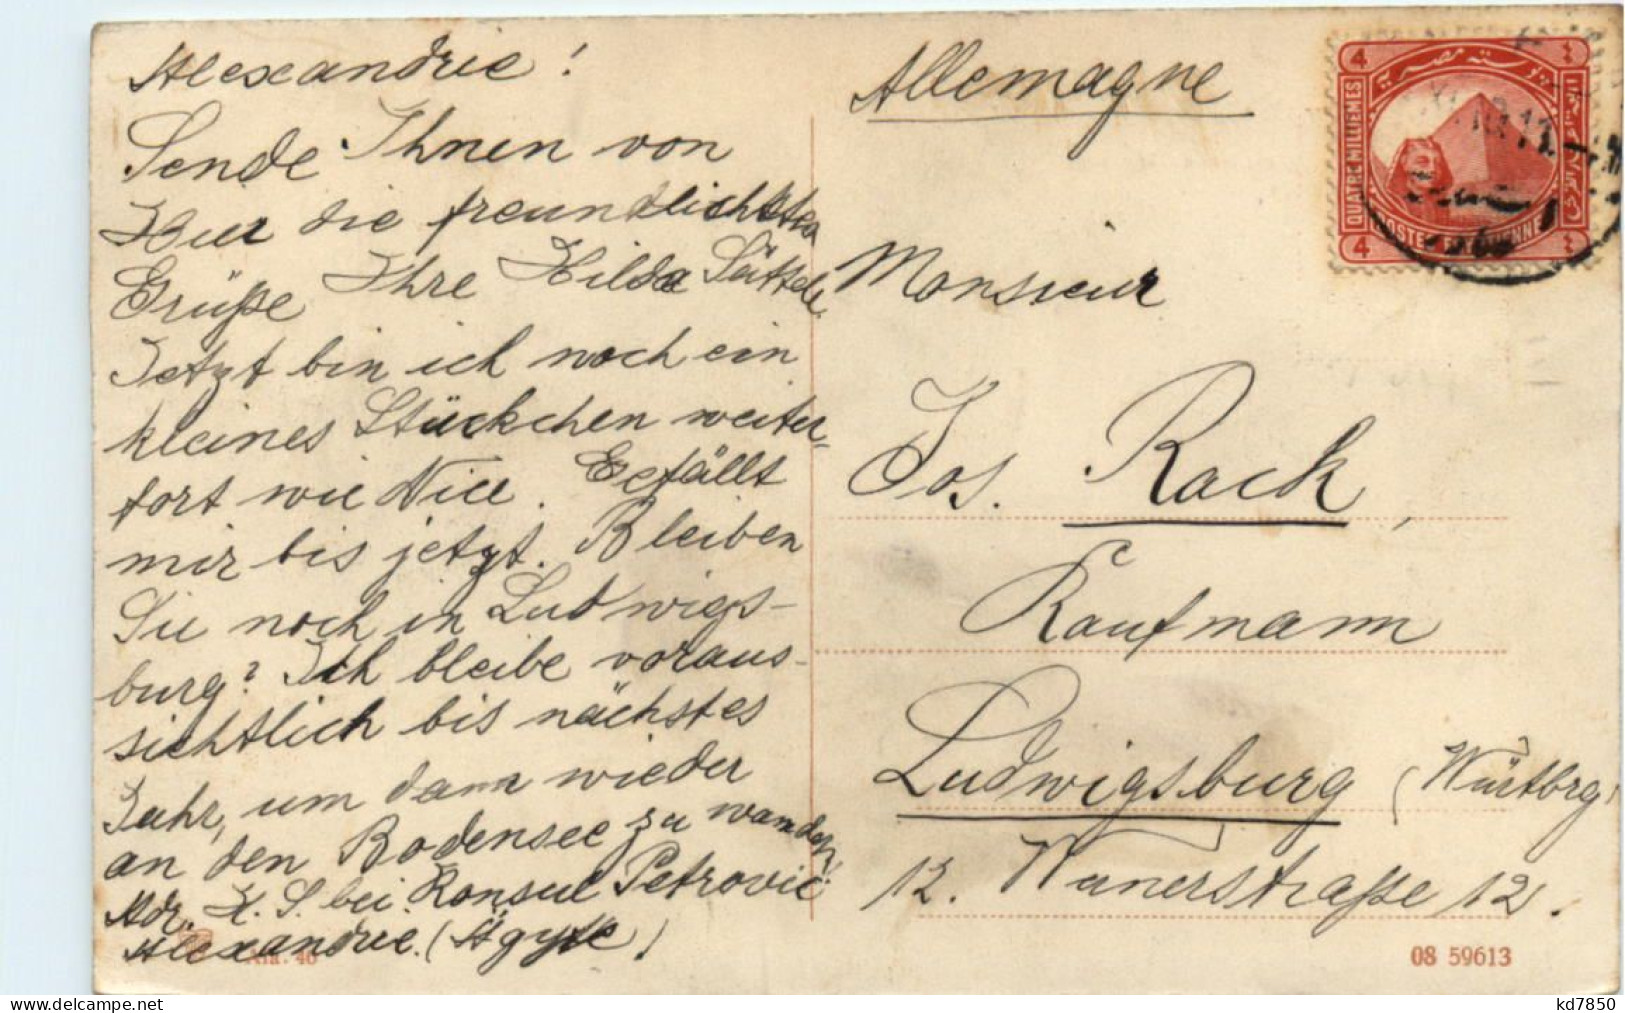 Alexandrie!
Sende Ihnen von
Hier die freundlichsten
Grüße Ihre Hilda
Jetzt bin ich noch ein
kleines Stückchen weiter-
fort wie Nice. Gefällt
mir bis jetzt. Bleiben
Sie noch in Ludwigs-
burg? Ich bleibe voraus-
sichtlich bis nächstes
Jahr, um dann wieder
an den Bodensee zu wandern.
Adr. H. S. bei Konsul Petrović
Alexandrie. (Ägypte)
Allemagne
4 4
QUATRE MILLIEMES
POSTES EGYPTIENNES
4 4
Monsieur
Jos. Rack,
Kaufmann
Ludwigsburg (Würtbrg)
12. 12.
08 59613
kd7850